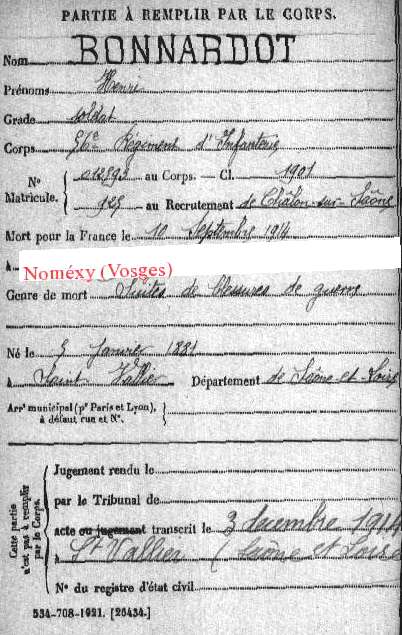 PARTIE À REMPLIR PAR LE CORPS.
Nom BONNARDOT
Prénoms Henri
Grade soldat
Corps 56e Régiment d'Infanterie
N° Matricule. { 012893 au Corps. — Cl. 1901
925 au Recrutement de Châlon-sur-Saône
Mort pour la France le 10 Septembre 1914
à Noméxy (Vosges)
Genre de mort Suites de blessures de guerre
Né le 5 Janvier 1881
à Saint Vallier Département de Saône-et-Loire
Arrt municipal (pr Paris et Lyon),
à défaut rue et N°.
Cette partie
n'est pas à remplir
par le Corps.
Jugement rendu le
par le Tribunal de
acte ou jugement transcrit le 3 décembre 1914
à St Vallier (Saône et Loire
N° du registre d'état civil
534-708-1921. [26434.]